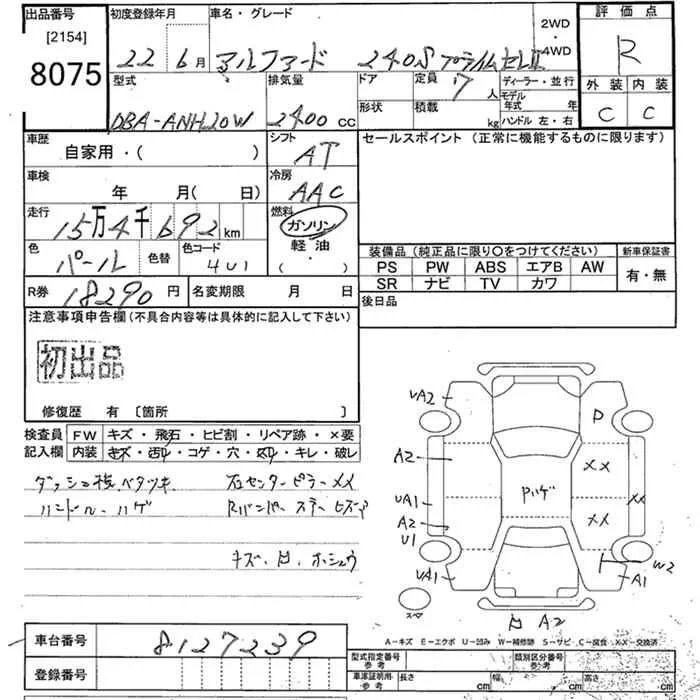 出品番号
[2154]
8075
初度登録年月
22 6月
車名・グレード
アルファード 240S プライムセレII
2WD
・
4WD
評価点
R
外装 内装
C C
型式
DBA-ANH20W
排気量
2400 CC
ドア
定員
7人
ディーラー・並行
形状
積載
kg
モデル年式 年
ハンドル 左・右
車歴
自家用・( )
シフト
AT
セールスポイント (正常に機能するものに限ります)
車検
年 月( 日)
冷房
AAC
走行
15万4千692km
燃料
ガソリン
軽油
( ・ )
色
パール
色替
色コード
4U1
装備品 (純正品に限り○をつけてください)
PS PW ABS エアB AW
SR ナビ TV カワ
新車保証書
有・無
R券 18290円
名変期限 月 日
後日品
注意事項申告欄 (不具合内容等は具体的に記入して下さい)
初出品
修復歴 有 〔箇所 〕
検査員記入欄
FW キズ・飛石・ヒビ割・リペア跡・×要
内装 キズ・汚れ・コゲ・穴・スレ・キレ・破レ
ダッシュ板ベタツキ 右センターピラーXX
ハンドル・ハゲ Rバンパー ステー
キズ、凹、ホシュウ
UA2
P
A2
XX
UA1
Pハゲ
XX
A2
XX
U1
UA1
W2
A1
スペア
凹 A2
A-キズ E-エクボ U-凹み W-補修跡 S-サビ C-腐食 XX-交換済
車台番号 8127239
登録番号
型式指定番号 参考
類別区分番号 参考
車庫証明用 参考
長さ cm 幅 cm 高さ cm